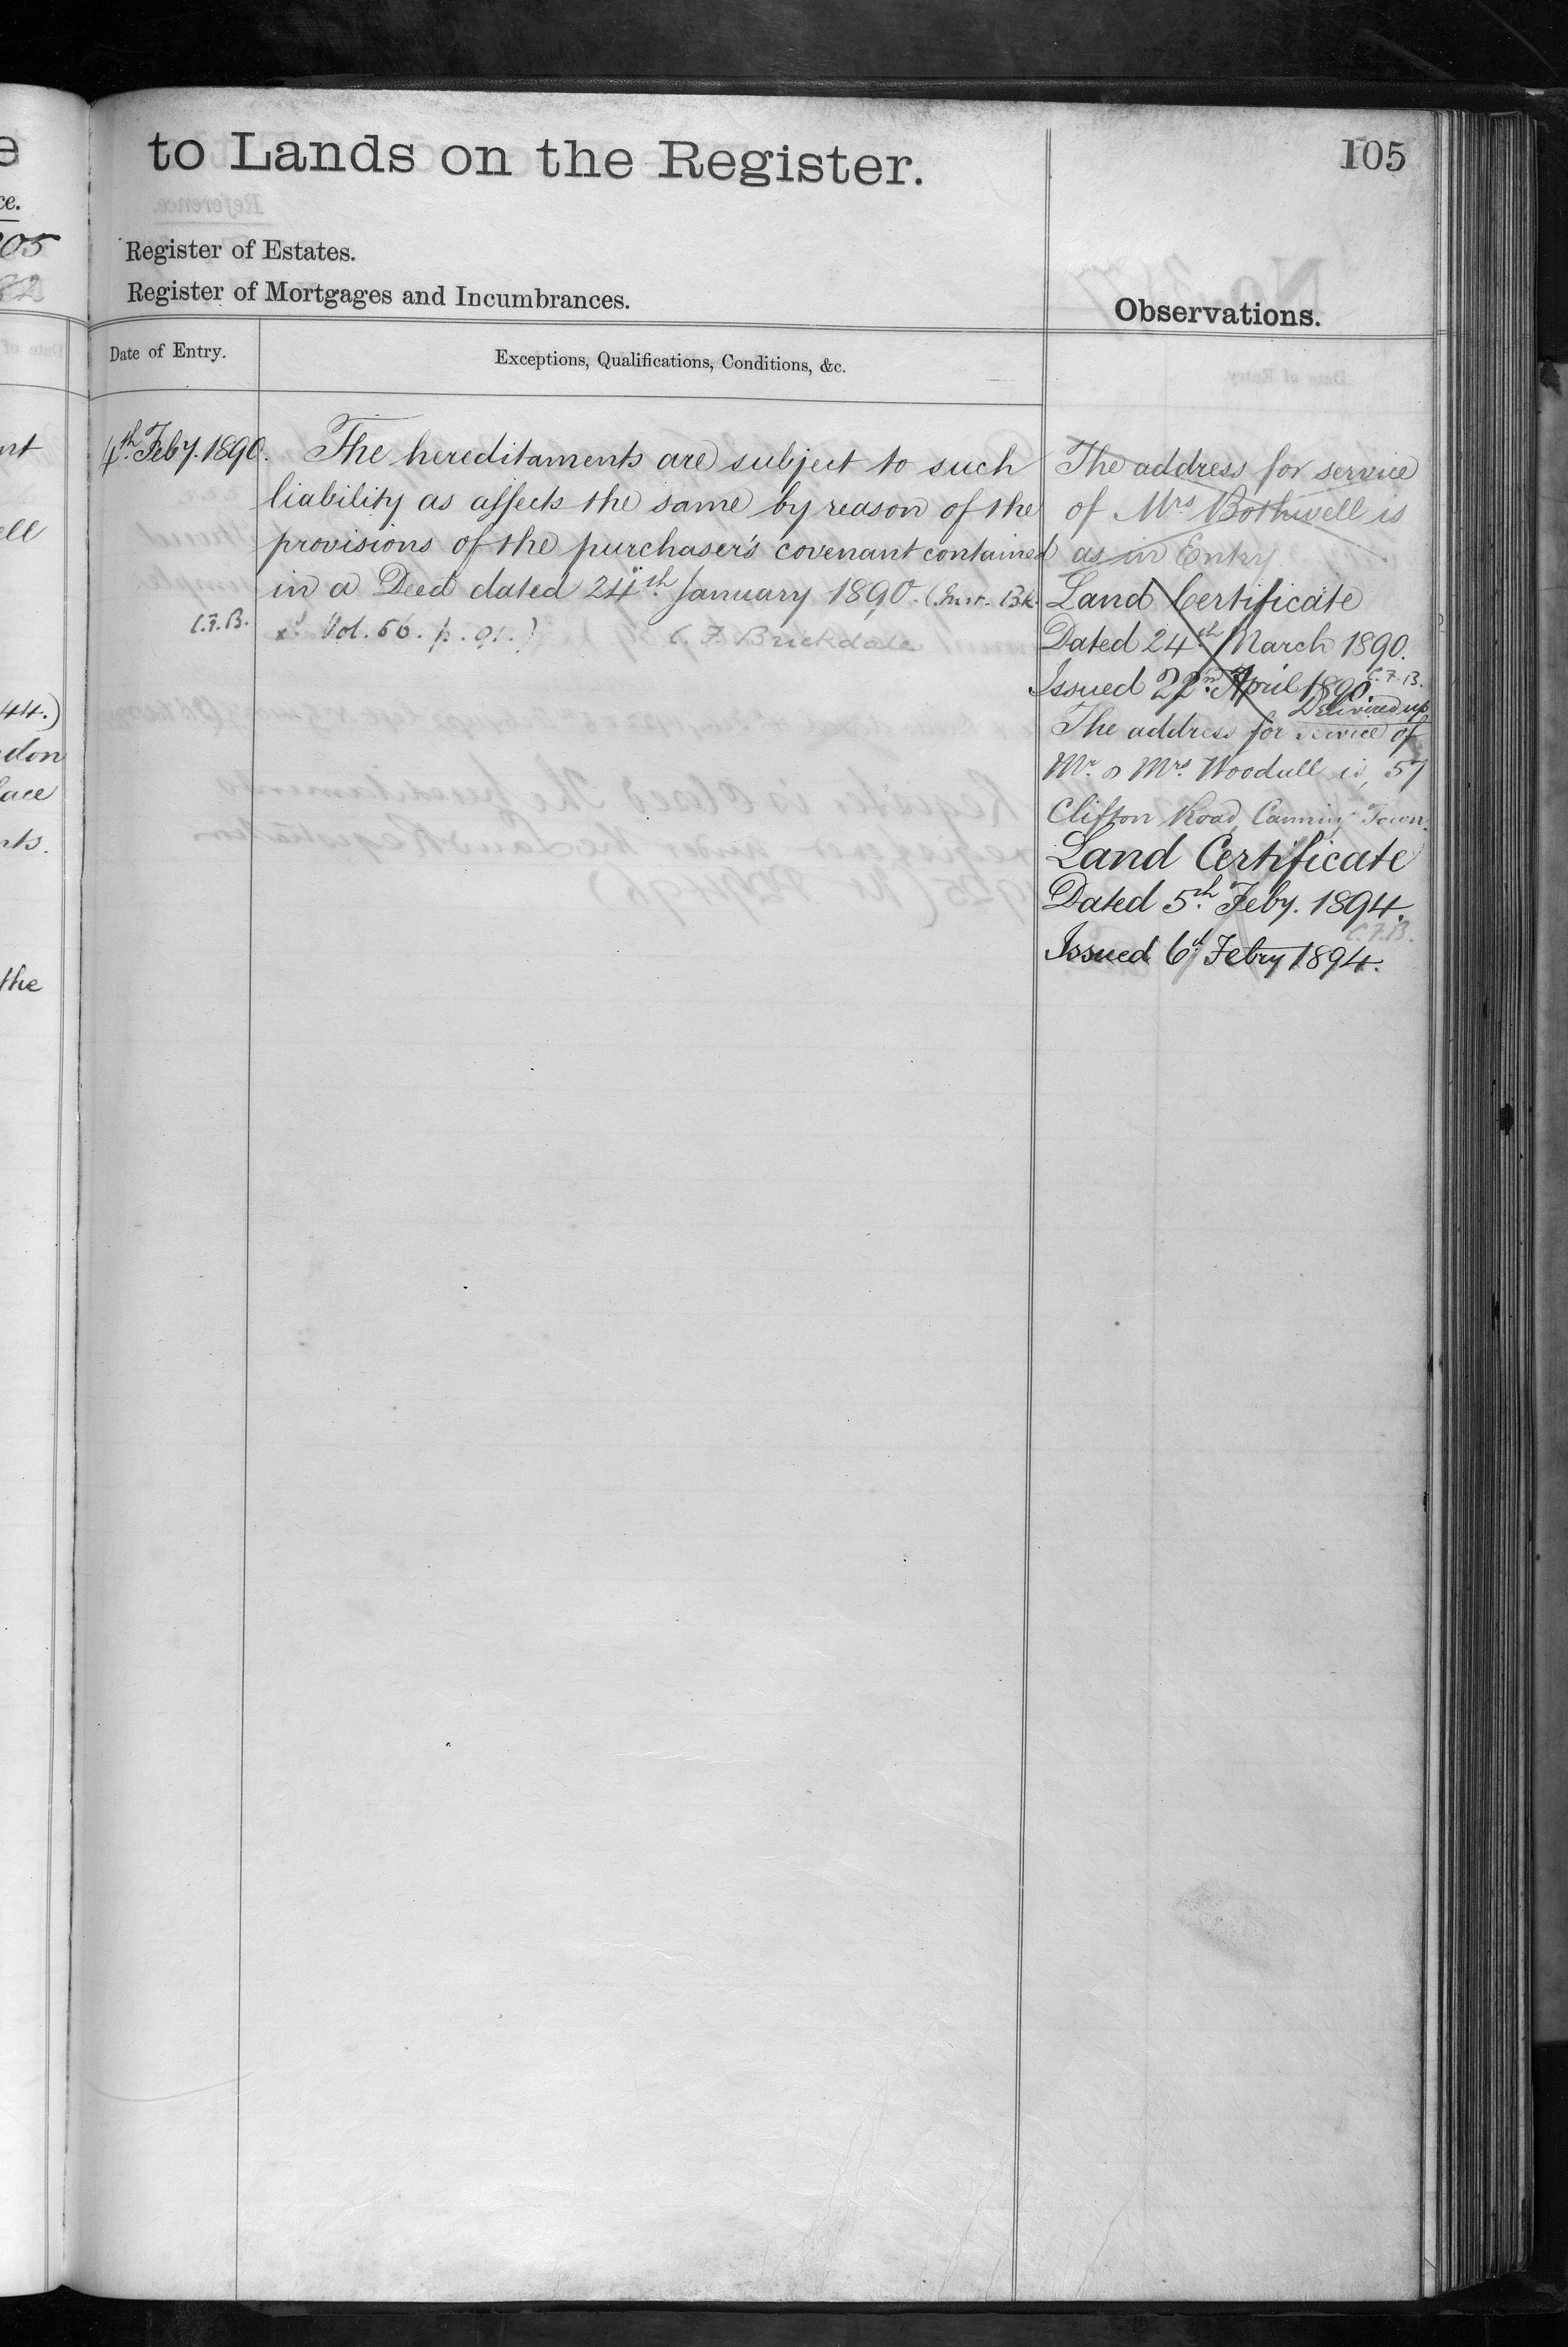 to Lands on the Register.
105
Register of Estates.
Register of Mortgages and Incumbrances.
Observations.
Date of Entry.
Exceptions, Qualifications, Conditions, &c.
4th Feby. 1890.
The hereditaments are subject to such
liability as affects the same by reason of the
provisions of the purchaser's covenant contained
in a Deed dated 24th January 1890. (Instr. Bk.
C.F.B.
Vol. 56. p. 91.)
C. F. Brickdale
The address for service
of Mrs Bothwell is
as in Entry
Land Certificate
Dated 24th March 1890.
Issued 22nd April 1890.
C.F.B.
Delivered up
The address for service of
Mr. & Mrs. Woodull is, 57
Clifton Road, Canning Town.
Land Certificate
Dated 5th Feby. 1894.
C.F.B.
Issued 6th Febry 1894.
e
ce.
05
82
nt
ell
44.)
don
lace
nts.
the